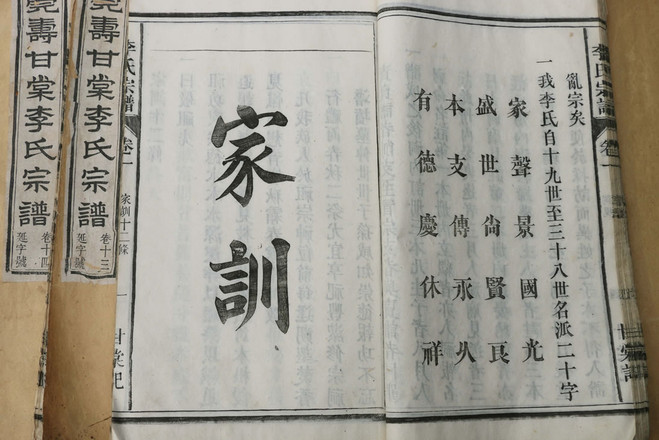 李氏宗譜 卷二
甘棠記
亂宗矣
一我李氏自十九世至三十八世名派二十字
家聲景國光
盛世尙賢良
本支傳永久
有德慶休祥
家訓
李氏宗譜 卷二 家訓十二條 一 甘棠記
壽甘棠李氏宗譜
卷十三
延字號
壽甘棠李氏宗譜
卷十四
延字號